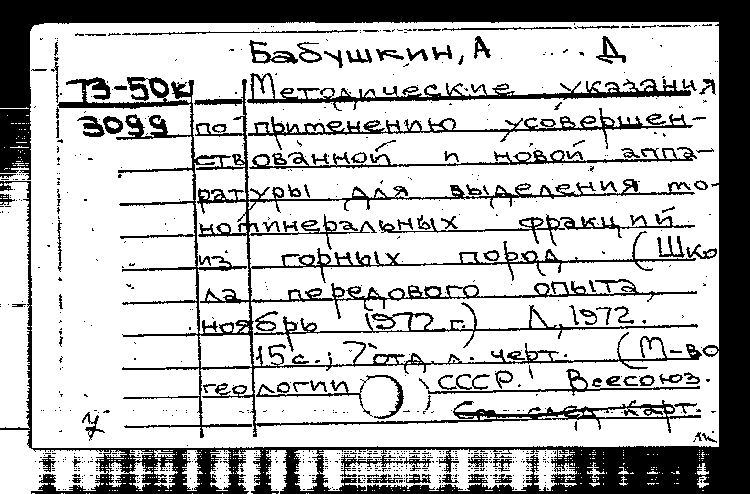 Бабушкин, А Д
73-50к Методические указания
3099 по применению усовершен-
ствованной и новой аппа-
ратуры для выделения мо-
номинеральных фракций
из горных пород. (Шко
ла передового опыта,
ноябрь 1972 г.) Л., 1972.
15 с.; 7 отд. л. черт. (М-во
геологии СССР. Всесоюз.
См след карт.